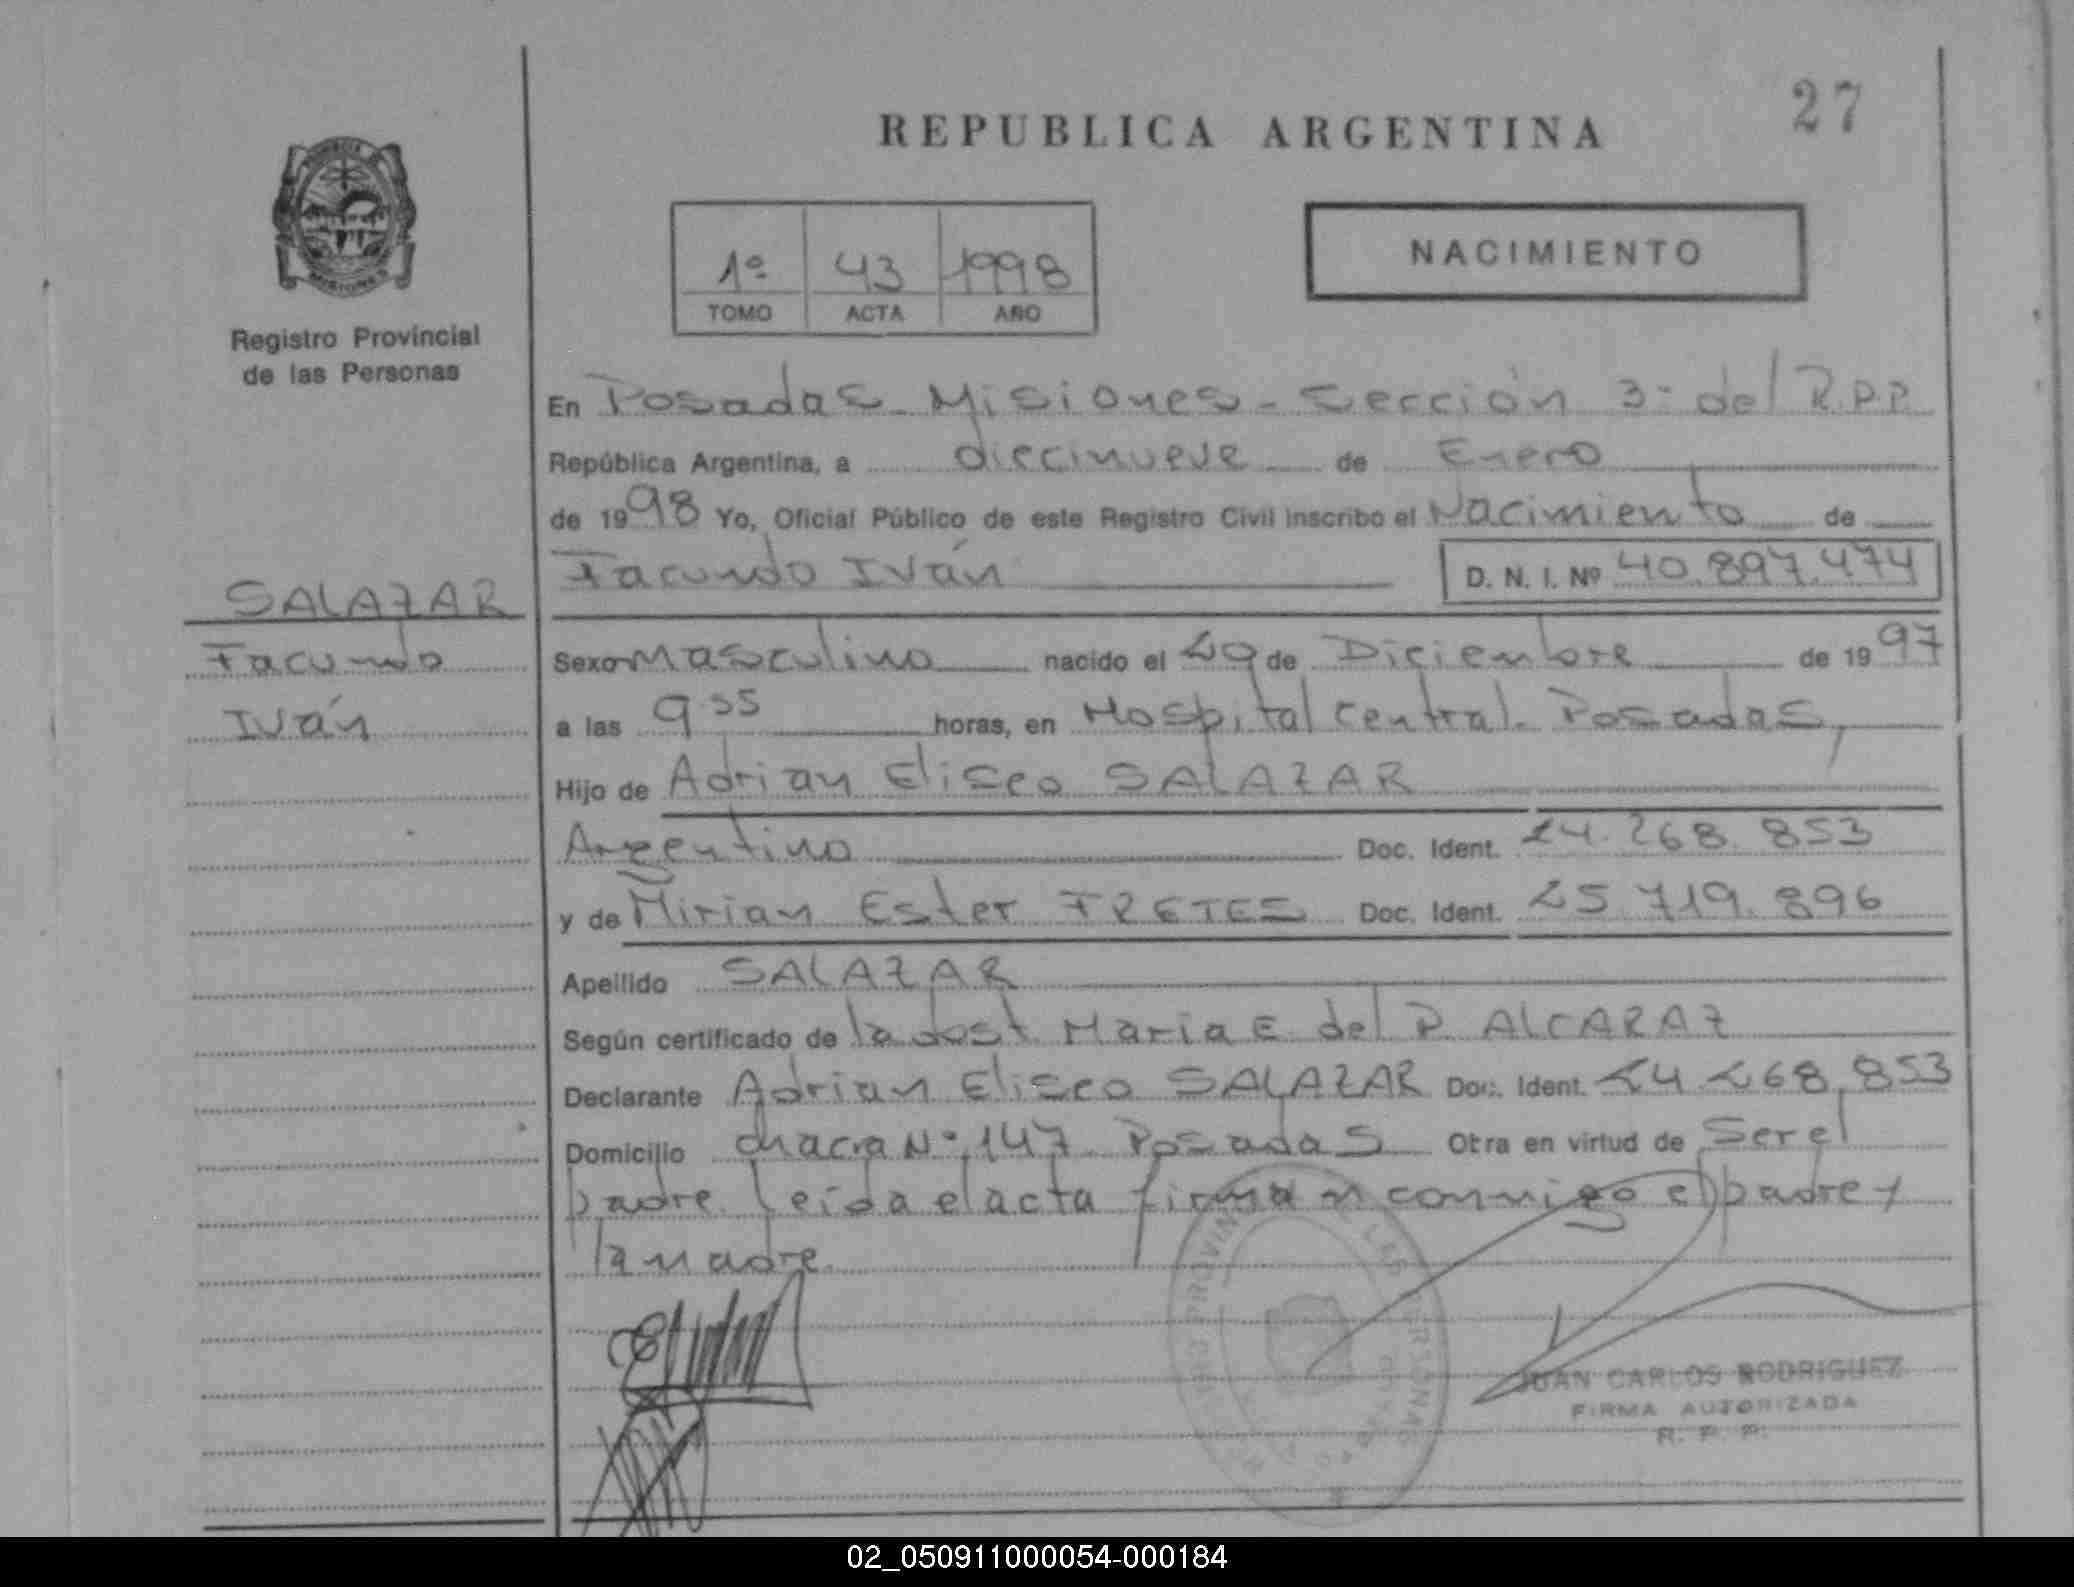 27
REPUBLICA ARGENTINA
PROVINCIA DE
MISIONES
Registro Provincial
de las Personas
1º 43 1998
TOMO ACTA AÑO
NACIMIENTO
En Posadas Misiones - Sección 3ª del R.P.P.
República Argentina, a diecinueve de Enero
de 1998 Yo, Oficial Público de este Registro Civil inscribo el Nacimiento de
Facundo Iván D. N. I. Nº 40.897.474
SALAZAR
Facundo
Iván
Sexo Masculino nacido el 29 de Diciembre de 1997
a las 9 55 horas, en Hospital Central. Posadas,
Hijo de Adrian Eliseo SALAZAR
Argentino Doc. Ident. 24.268.853
y de Mirian Ester FRETES Doc. Ident. 25.719.896
Apellido SALAZAR
Según certificado de la dost. Maria E. del P. ALCARAZ
Declarante Adrian Eliseo SALAZAR Doc. Ident. 24.268.853
Domicilio chacra Nº 147. Posadas Otra en virtud de Ser el
padre. Leída el acta firman conmigo el padre y
la madre.
JUAN CARLOS RODRIGUEZ
FIRMA AUTORIZADA
R. P. P.
02_050911000054-000184